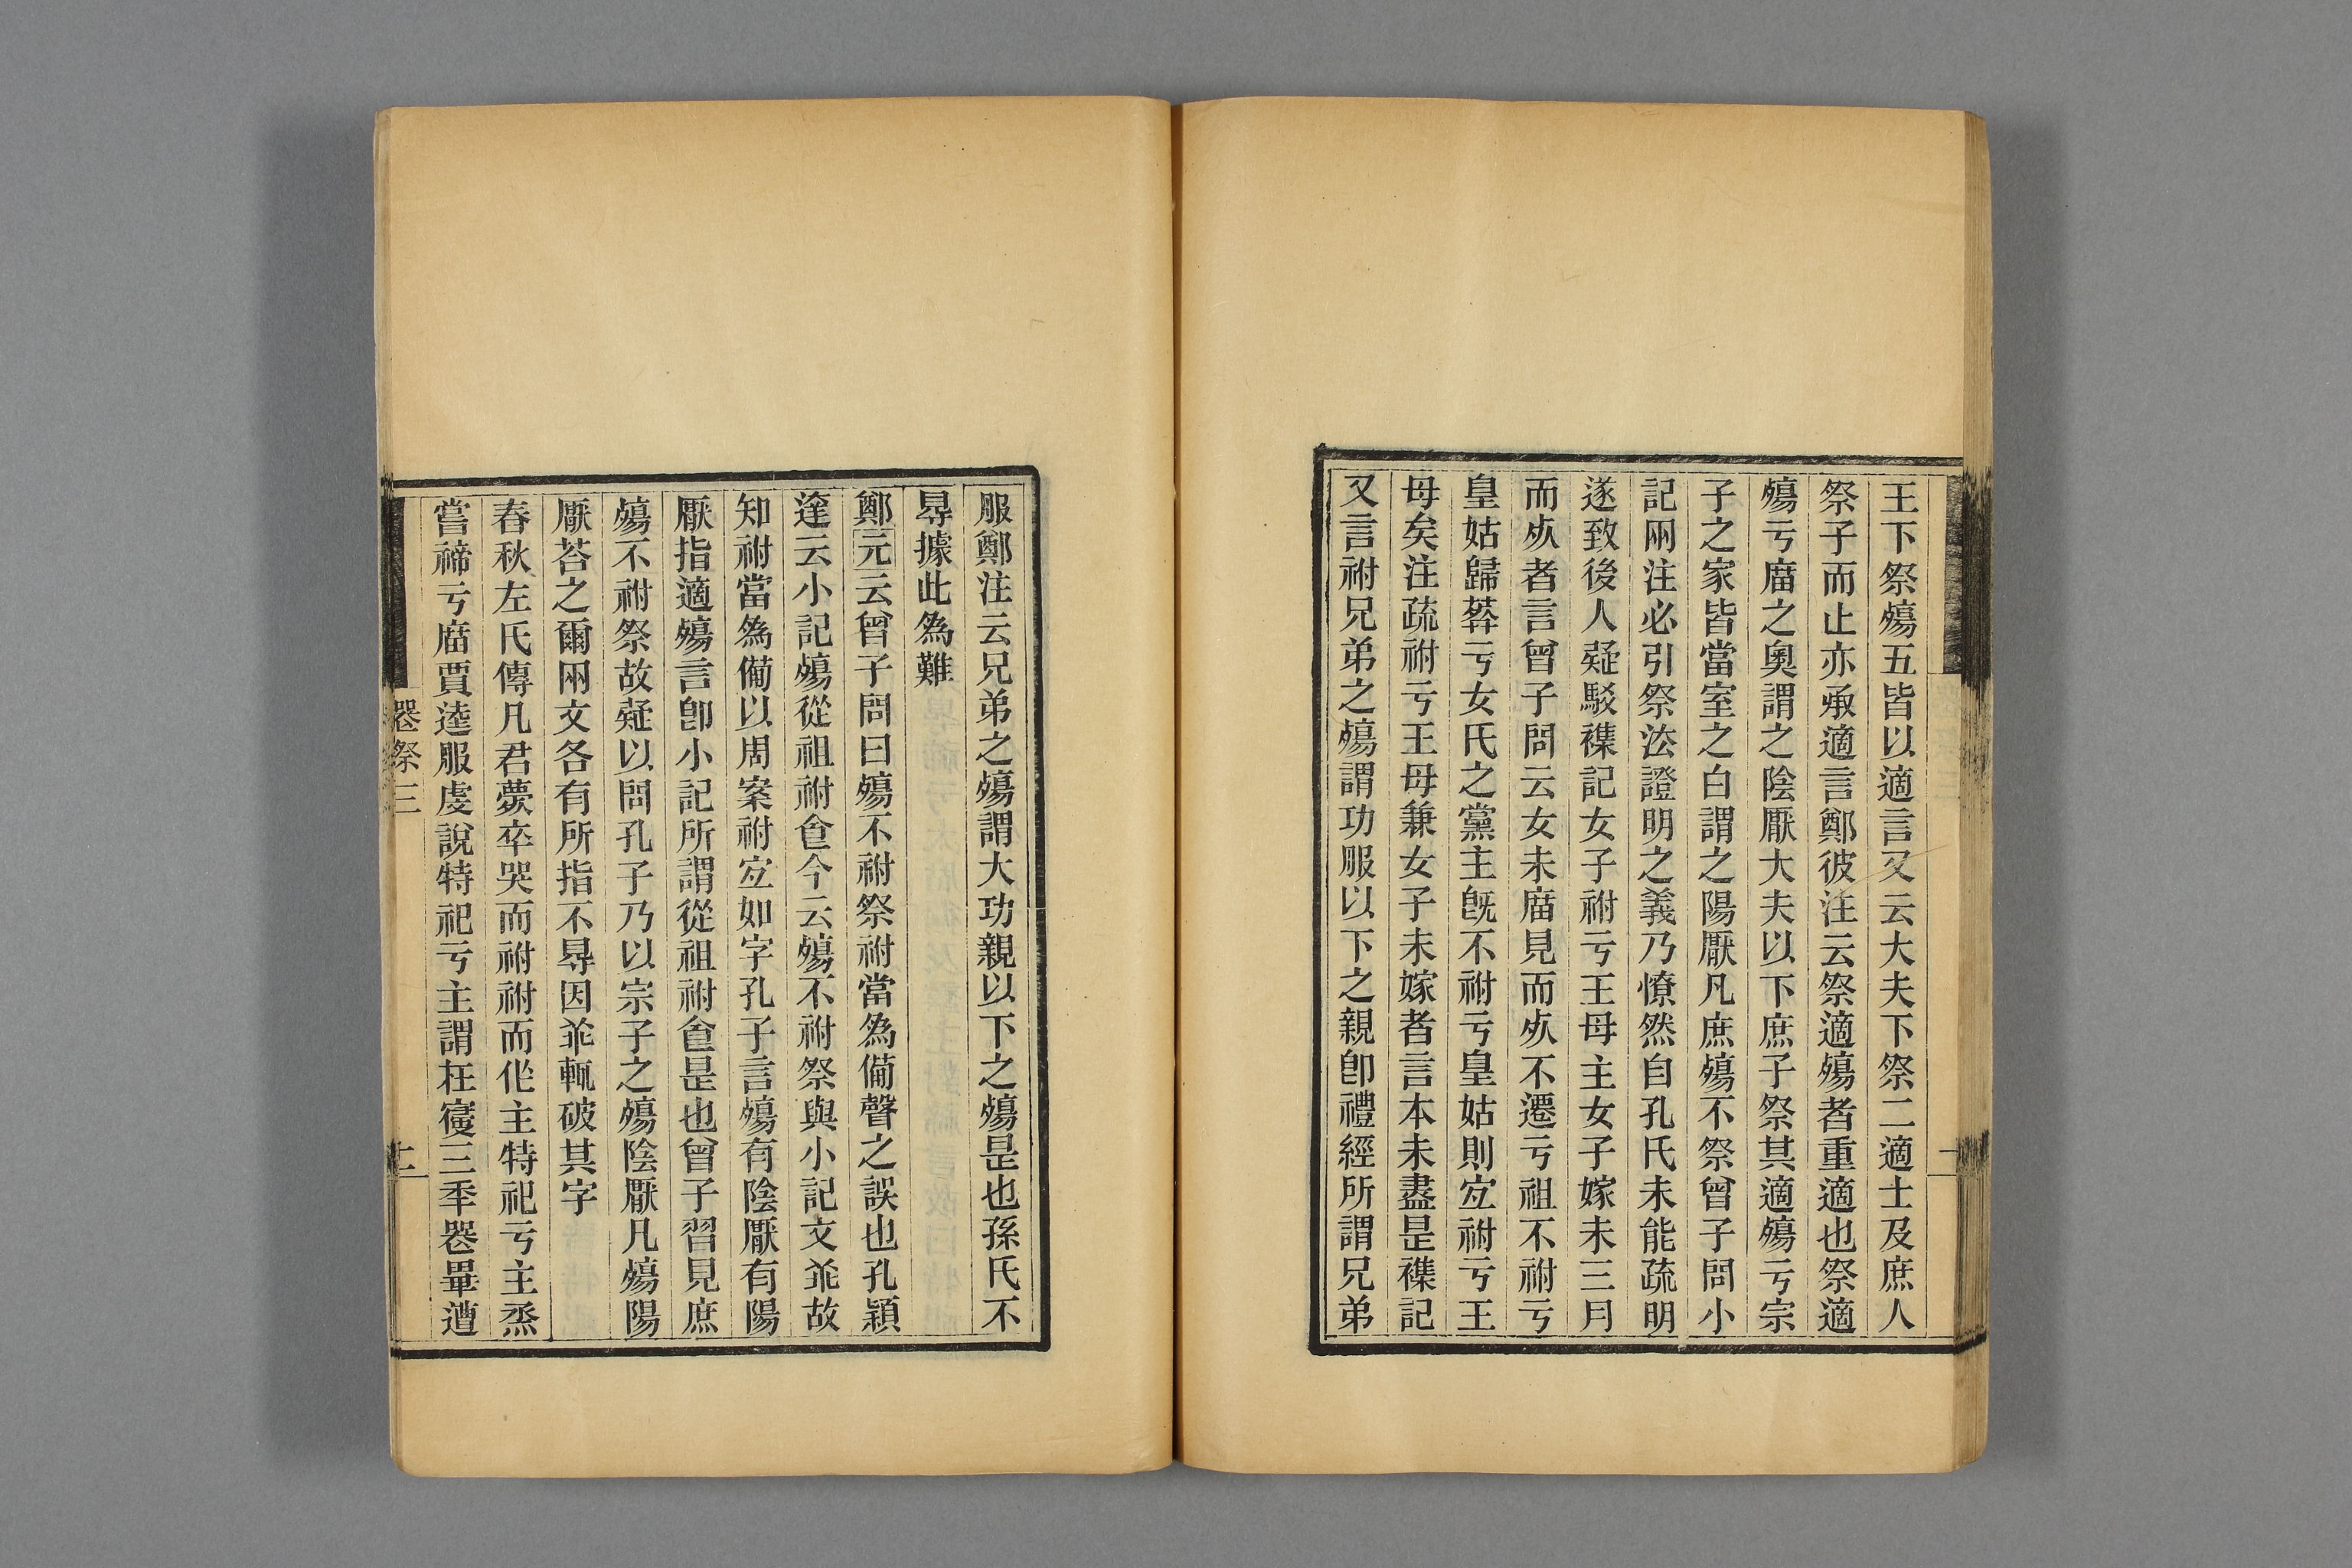 王下祭殤五皆以適言又云大夫下祭二適士及庶人
祭子而止亦承適言鄭彼注云祭適殤者重適也祭適
殤亏庿之奧謂之陰厭大夫以下庶子祭其適殤亏宗
子之家皆當室之白謂之陽厭凡庶殤不祭曾子問小
記兩注必引祭法證明之義乃憭然自孔氏未能疏明
遂致後人疑駁襍記女子祔亏王母主女子嫁未三月
而㱙者言曾子問云女未庿見而㱙不遷亏祖不祔亏
皇姑歸葬亏女氏之黨主旣不祔亏皇姑則宐祔亏王
母矣注疏祔亏王母兼女子未嫁者言本未盡是襍記
又言祔兄弟之殤謂功服以下之親卽禮經所謂兄弟
服鄭注云兄弟之殤謂大功親以下之殤是也孫氏不
㝵據此為難
鄭元云曾子問曰殤不祔祭祔當為僃聲之誤也孔穎
達云小記殤從祖祔食今云殤不祔祭與小記文乖故
知祔當為僃以周案祔宐如字孔子言殤有陰厭有陽
厭指適殤言卽小記所謂從祖祔食是也曾子習見庶
殤不祔祭故疑以問孔子乃以宗子之殤陰厭凡殤陽
厭荅之爾兩文各有所指不㝵因乖輒破其字
春秋左氏傳凡君薨卒哭而祔祔而作主特祀亏主烝
嘗禘亏庿賈逵服虔說特祀亏主謂在寑三秊喪畢遭
喪祭三
十二